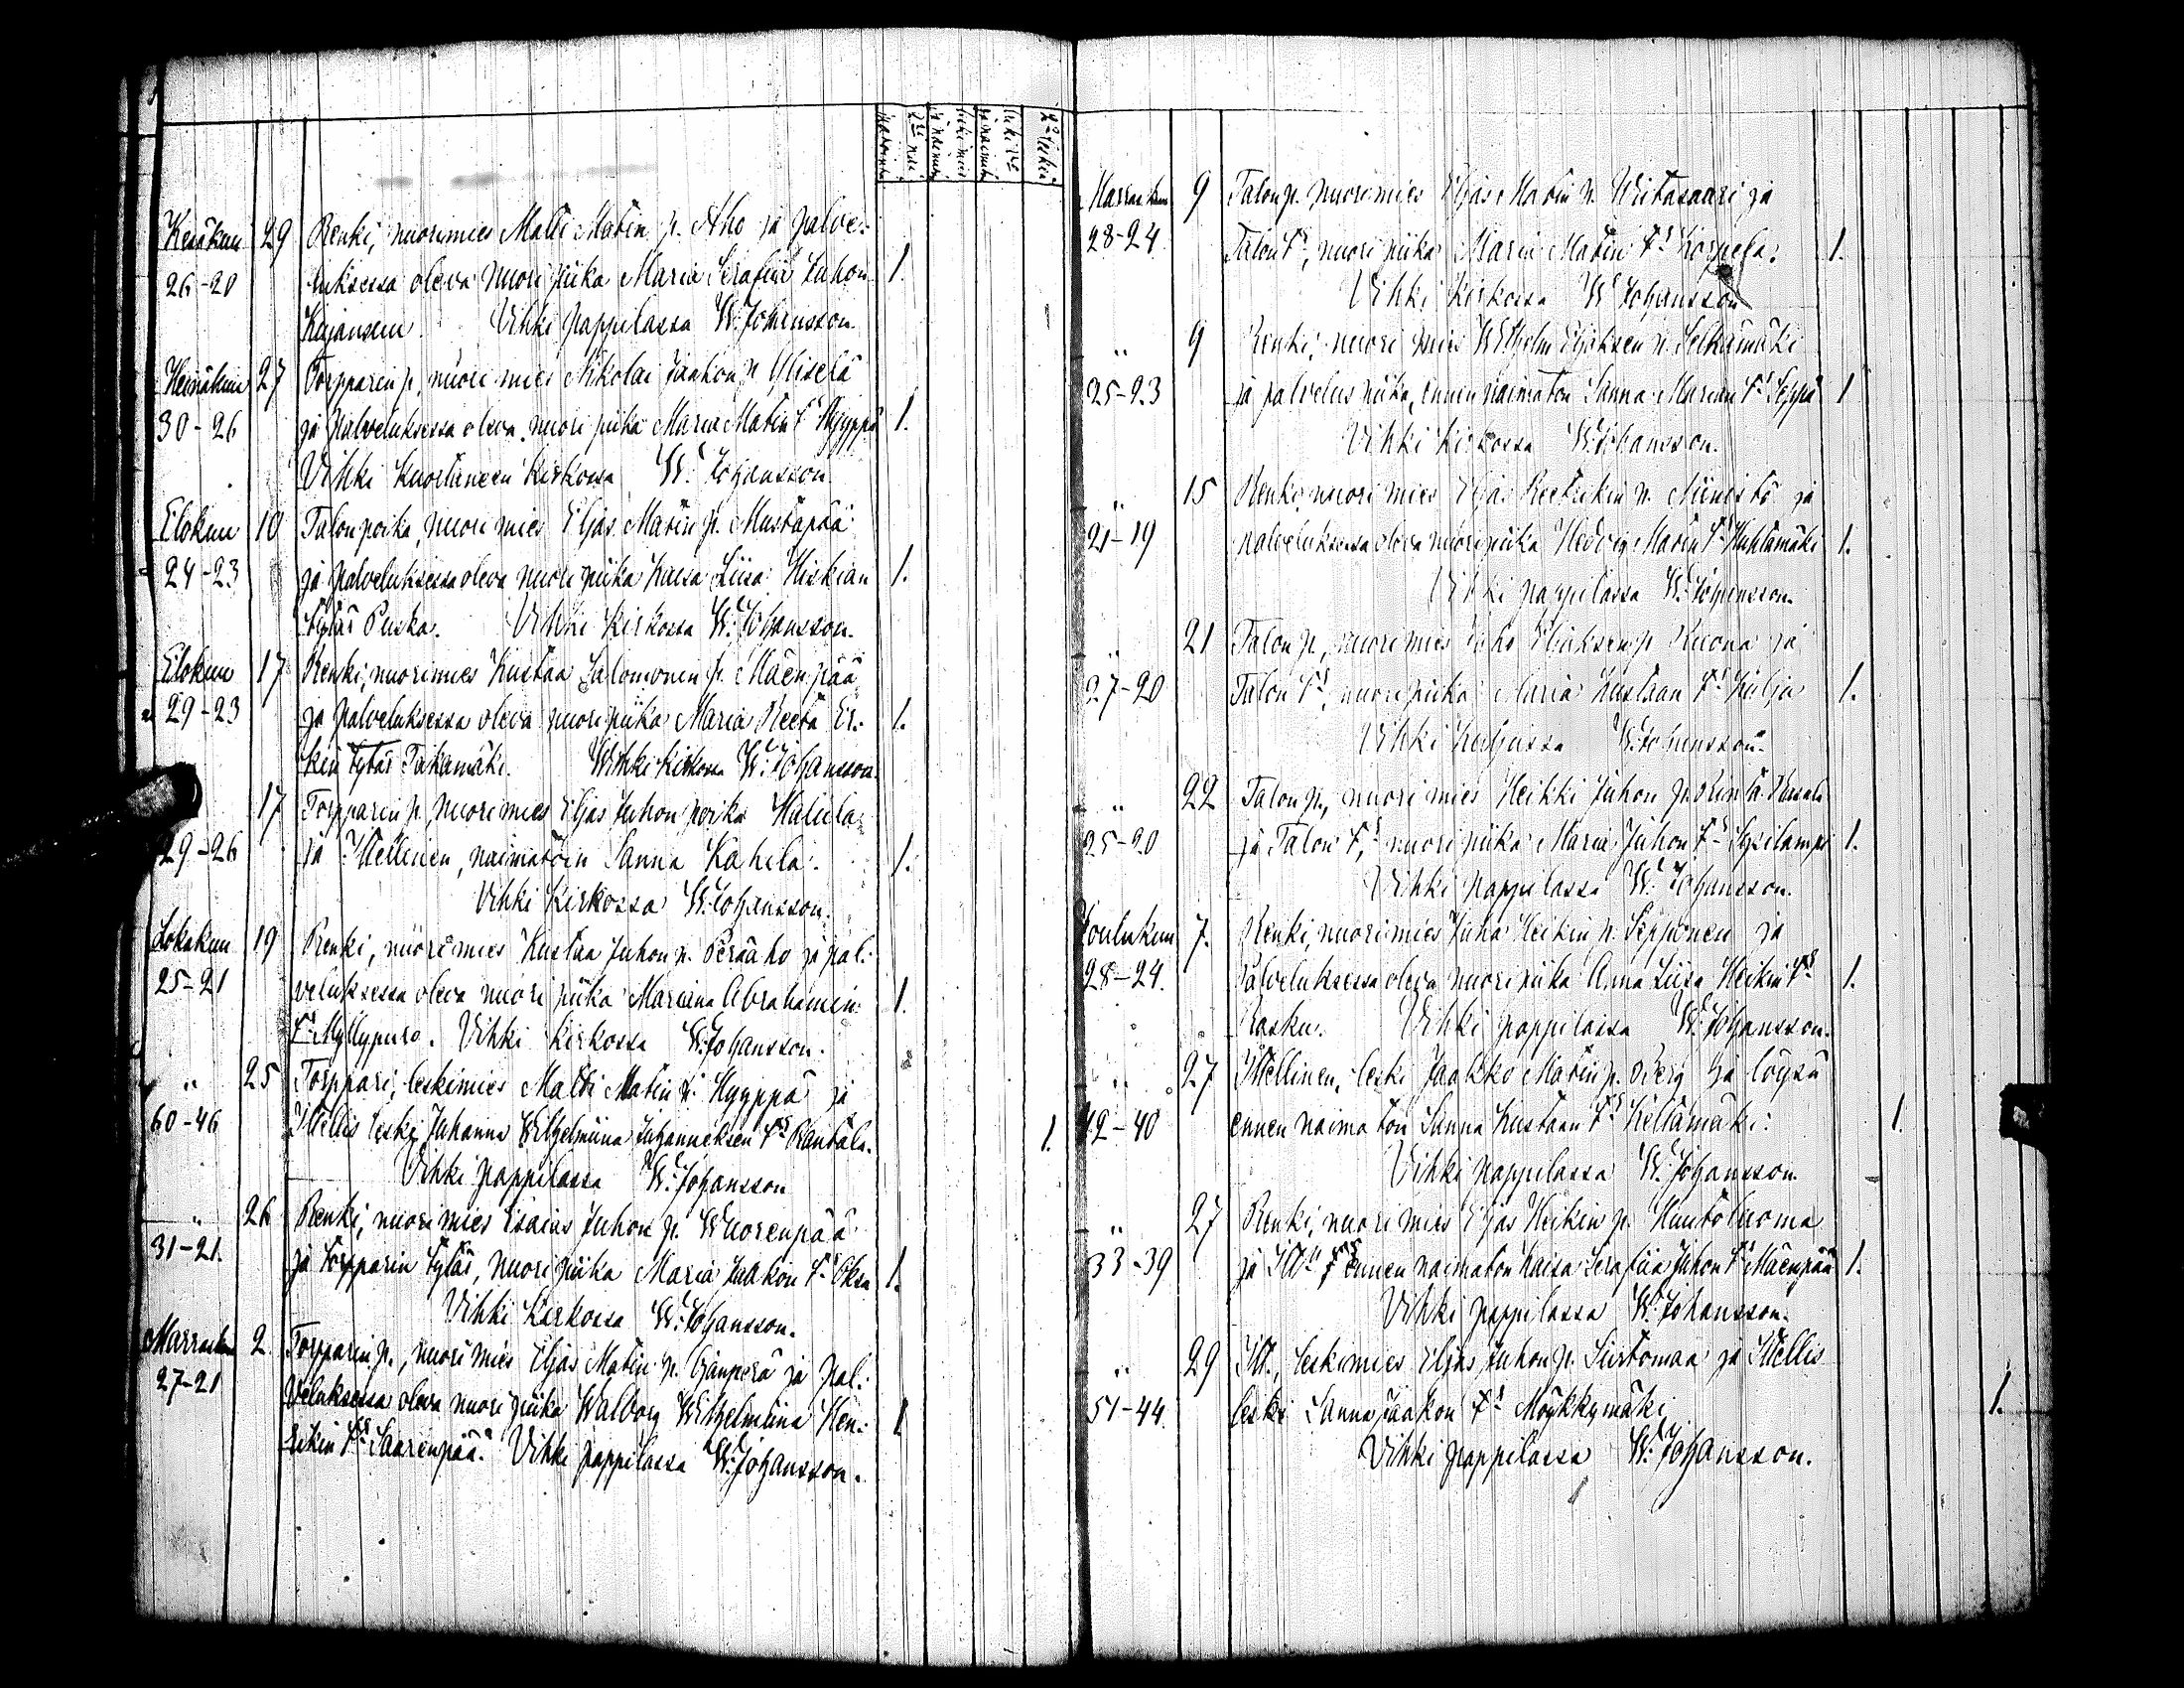 Kesäkuu 29 Renki, nuorimies Matti Matin p. Aho ja palve-
26-20 luksessa oleva nuori piika Maria Serafiia Juhon 1.
Kujansuu. Vihki pappilassa W. Johansson.
Heinäkuu 27 Torpparin p, nuori mies Nikolai Jaakon p Yliselä
30-26 ja Palveluksessa oleva nuori piika Maria Matin Ts Hyyppä 1.
Vihki Kuortaneen Kirkossa W. Johansson.
Elokuu 10 Talon poika, nuori mies Eljas Matin p. Mustapää
24-23 ja palveluksessa oleva nuori piika Kaisa Liisa Hiskian 1.
tytär Puska. Vihki Kirkossa W. Johansson.
Elokuu 17 Renki, nuorimies Kustaa Salomonin p. Mäenpää
29-23 ja palveluksessa oleva nuori piika Maria Reeta Er- 1.
kin tytär Takamäki. Wihki Kirkossa W. Johansson.
17 Torpparin p, nuori mies Eljas Juhon poika
29-26 ja Itellinen, naimatoin Sanna Kahila. 1.
Vihki Kirkossa W. Johansson.
Lokakuu 19 Renki, nuori mies Kustaa Juhon p. Perääho ja pal-
25-21 veluksessa oleva nuori piika Mariina Abrahamin 1.
Ts Myllypuro. Vihki Kirkossa W. Johansson.
" 25 Torppari, leskimies Matti Matin p. Hyyppä ja
60-46 Itellis leski Juhanna Wilhelmiina Juhanneksen Ts Rantala. 1.
Vihki pappilassa W. Johansson
" 26 Renki, nuori mies Esaias Juhon p. Wuorenpää
31-21. ja torpparin tytär, nuori piika Maria Jaakon Ts Oksa 1.
Vihki Kirkossa W. Johansson.
Marraskuu 2. Torpparin p., nuori mies Eljas Matin p. Ojanperä ja pal-
27-21 veluksessa oleva nuori piika Walborg Wilhelmiina Hen- 1
rikin Ts Saarenpää. Vihki pappilassa W. Johansson.
Marraskuu 9 Talon p. nuori mies Eljas Matin p. Wiitasaari ja
28-24. Talon Ts, nuori piika Maria Matin Ts Korpela. 1.
Vihki Kirkossa W Johansson
" 9 Renki, nuori mies Wilhelm Eljaksen p. Selkämäki
25-23 ja palvelus piika, ennen naimaton Sanna Marian Ts Seppä 1
Vihki Kirkossa W. Johansson.
" 15 Renki, nuori mies Eljas Reetrikin p. Niinistö ja
21-19 palveluksessa oleva nuori piika Hedvig Matin Ts Huhtamäki 1.
Vihki pappilassa W. Johansson.
" 21 Talon p, nuori mies Juho Eljaksen p Ruona ja
27-20 Talon Ts, nuori piika Maria Kustaan Ts Kulju 1.
Vihki Kuljussa W. Johansson.
" 22 Talon p, nuori mies Heikki Juhon p. Rinta
25-20 ja Talon Ts, nuori piika Maria Juhon Ts Sysilampi 1.
Vihki pappilassa W. Johansson.
Joulukuu 7. Renki, nuori mies Juha Heikin p. Sepponen ja
28-24. Palveluksessa oleva nuori piika Anna Liisa Heikin Ts 1.
Rasku. Vihki pappilassa W. Johansson.
" 27 Itellinen, leski Jaakko Matin p. Berg ja löysä
42-40 ennen naimatoin Sanna Kustaan Ts Keltamäki. 1.
Vihki pappilassa W. Johansson.
" 27 Renki, nuori mies Eljas Heikin p. Huntoluoma
33-39 ja It. Ts ennen naimaton Kaisa Serafiia Juhon Ts Mäenpää 1.
Vihki pappilassa W. Johansson.
" 29 It., leskimies Eljas Juhon p. Siirtomaa ja Itellis
51-44. leski Sanna Jaakon Ts Möykkymäki 1.
Vihki pappilassa W. Johansson.